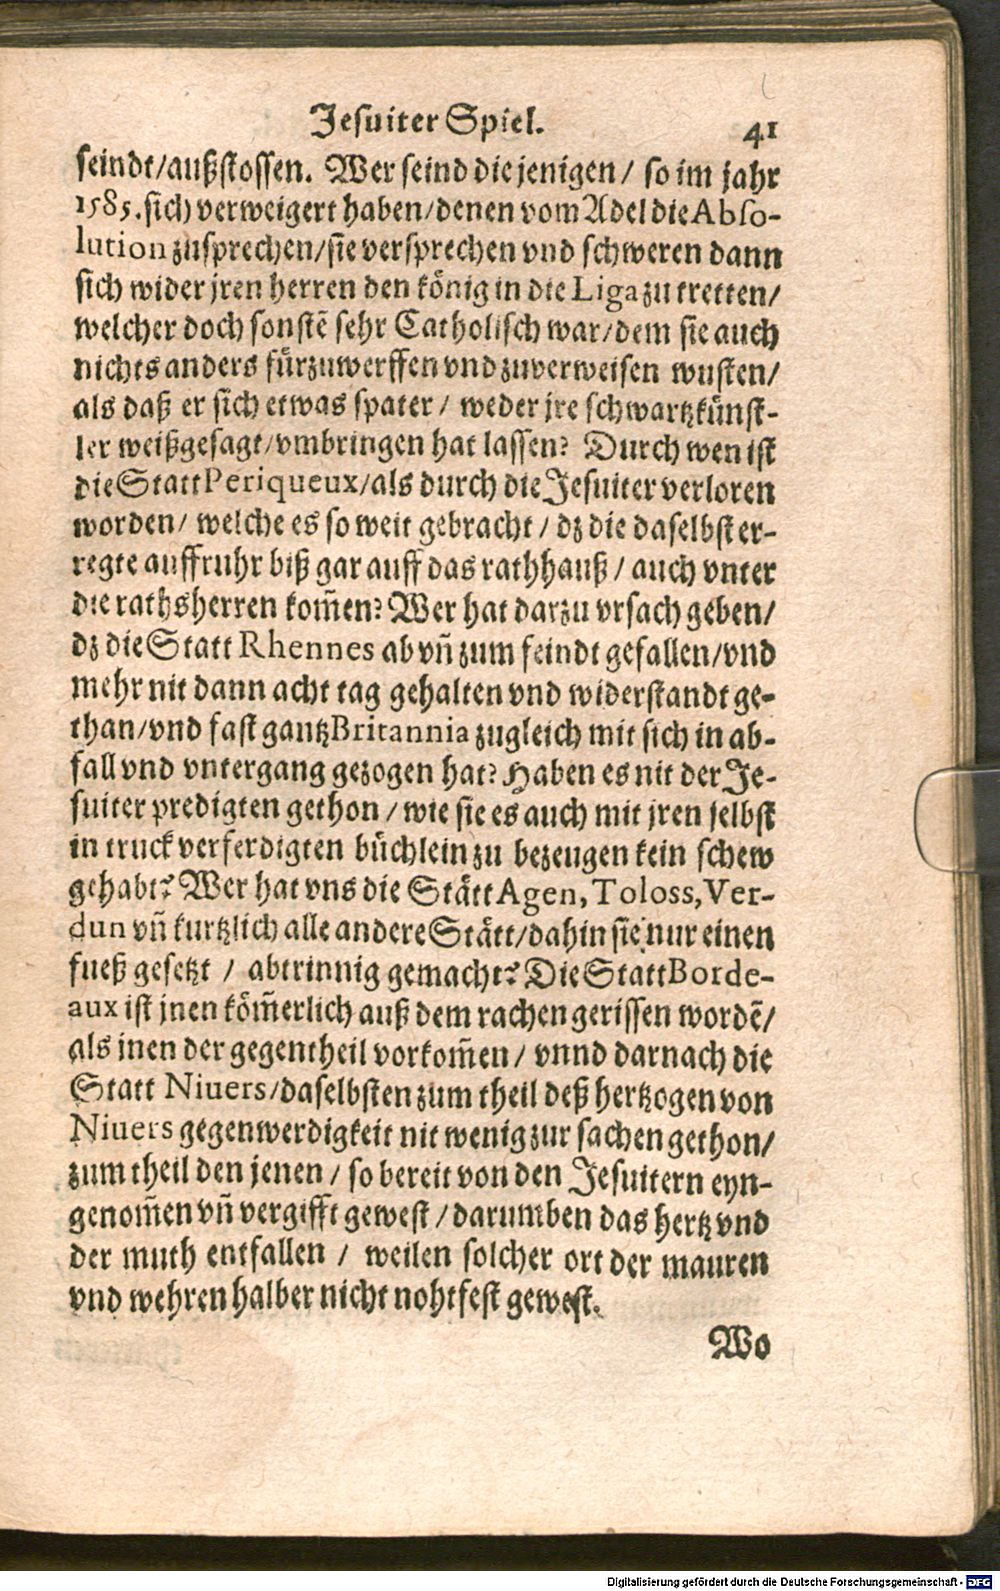 Jesuiter Spiel. 41
seindt/außstossen. Wer seind die jenigen / so im jahr
1585. sich verweigert haben/denen vom Adel die Abso-
lution zusprechen/sie versprechen vnd schweren dann
sich wider jren herren den könig in die Liga zu tretten/
welcher doch sonstē sehr Catholisch war/dem sie auch
nichts anders fürzuwerffen vnd zuverweisen wusten/
als daß er sich etwas spater / weder jre schwartzkünst-
ler weißgesagt/vmbringen hat lassen? Durch wen ist
die Statt Periqueux/als durch die Jesuiter verloren
worden/ welche es so weit gebracht / dz die daselbst er-
regte auffruhr biß gar auff das rathhauß / auch vnter
die rathsherren kom̄en? Wer hat darzu vrsach geben/
dz die Statt Rhennes ab vn̄ zum feindt gefallen/vnd
mehr nit dann acht tag gehalten vnd widerstandt ge-
than/vnd fast gantz Britannia zugleich mit sich in ab-
fall vnd vntergang gezogen hat? Haben es nit der Je-
suiter predigten gethon / wie sie es auch mit jren selbst
in truck verferdigten büchlein zu bezeugen kein schew
gehabt? Wer hat vns die Stätt Agen, Toloss, Ver-
dun vn̄ kurtzlich alle andere Stätt/dahin sie nur einen
fueß gesetzt / abtrinnig gemacht? Die Statt Borde-
aux ist jnen köm̄erlich auß dem rachen gerissen wordē/
als jnen der gegentheil vorkom̄en / vnnd darnach die
Statt Niuers/daselbsten zum theil deß hertzogen von
Niuers gegenwerdigkeit nit wenig zur sachen gethon/
zum theil den jenen / so bereit von den Jesuitern eyn-
genom̄en vn̄ vergifft gewest / darumben das hertz vnd
der muth entfallen / weilen solcher ort der mauren
vnd wehren halber nicht nohtfest gewest.
Wo
Digitalisierung gefördert durch die Deutsche Forschungsgemeinschaft - DFG